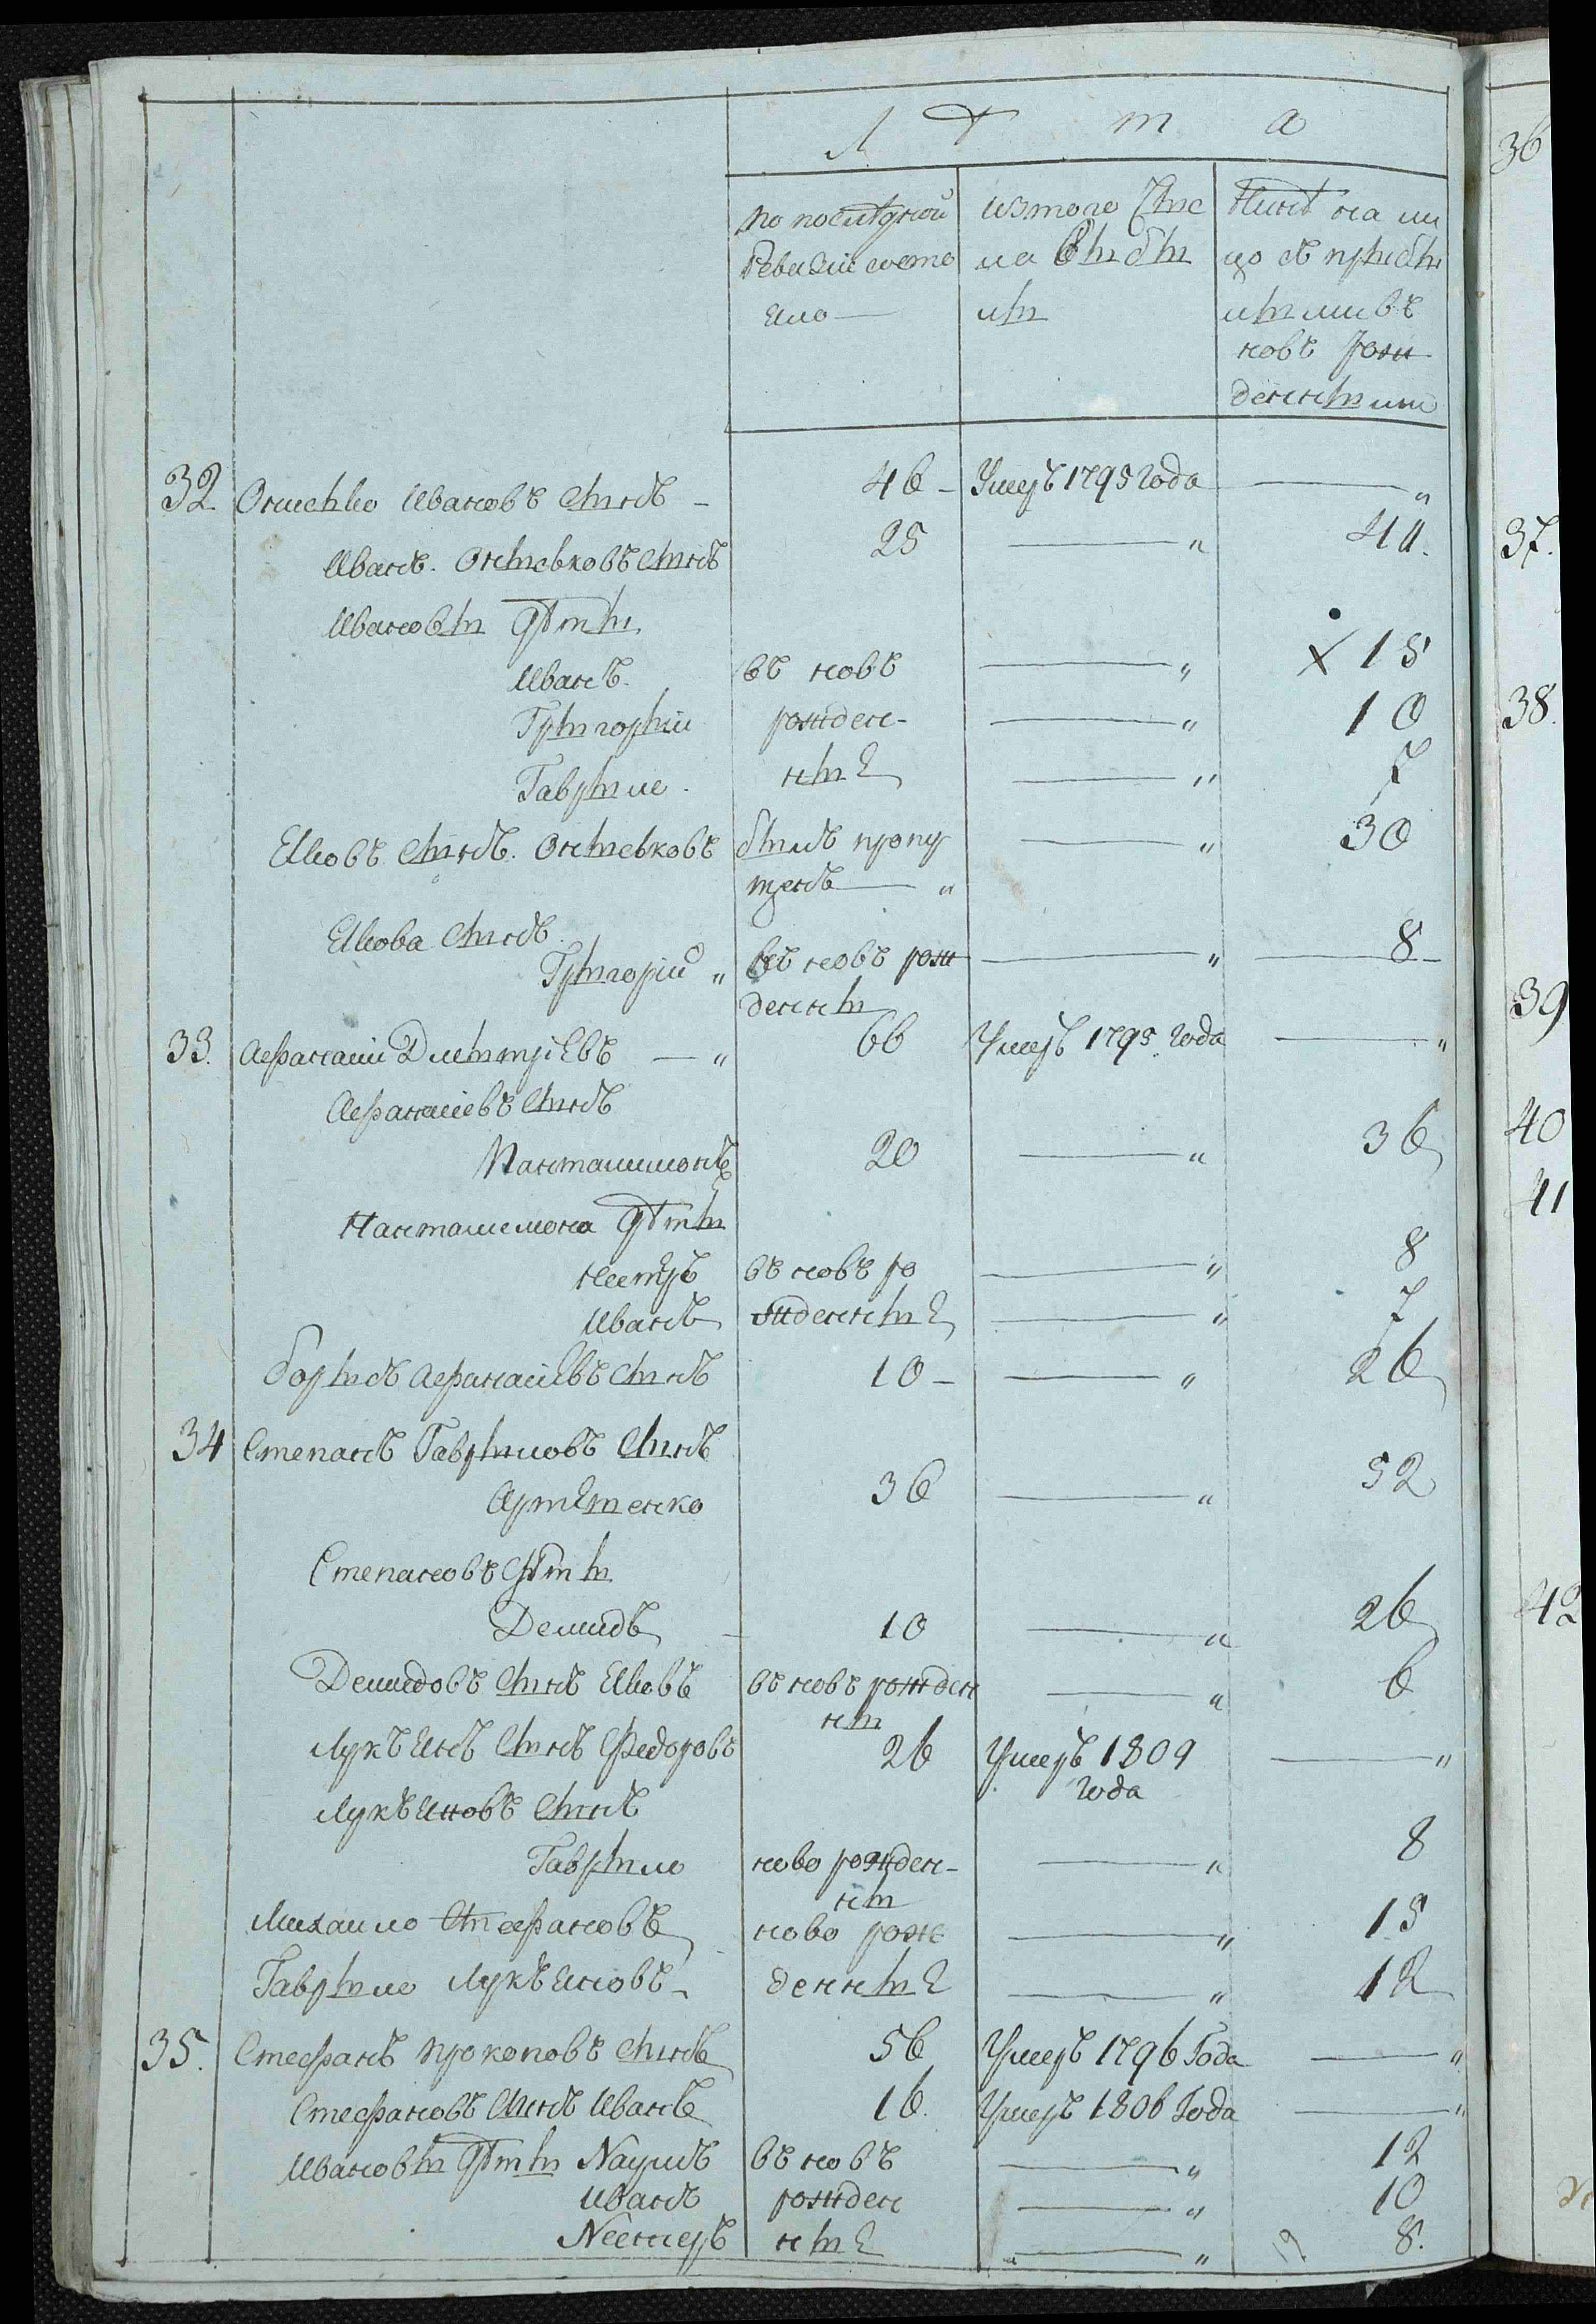 Лѣта
по послѣдней | изтого Чис | Нинѣ на ли
Ревизіи состо | ла Выбы | цо съ прыбы
яло — | лы | лыми въ
новъ рож
денными
32. Онисько Ивановъ Сынъ — 46 — Умеръ 1795 года — „
Иванъ. Онысковъ Сынъ 25 — „ 41.
Ивановы Дѣты
Иванъ. въ новъ — „ × 15
Грыгорый рожден- — „ 10
Гаврыло. ные — „ 7
Яковъ Сынъ. Онысковъ былъ пропу — „ 30
щенъ — „
Якова Сынъ.
Грыгорій „ въ новъ рож — „ 8 —
денны
33. Афанасій Дмытріевъ — „ 66 Умеръ 1795. года — „
Афанасіевъ Сынъ
Панталимонъ 20 — „ 36
Панталемона Дѣты
Нестръ въ новъ ро — „ 8
Иванъ жденные — „ 7
Борысъ Афанасіевъ Сынъ 10 — — „ 26
34 Степанъ Гаврыловъ Сынъ
36 — „ 52
Степановъ Дѣты
Демидъ 10 — „ 26
Демидовъ Сынъ Яковъ въ новъ рожден — „ 6
ны
Лукъянъ Сынъ Федоровъ 26 Умеръ 1809 — „
года
Лукъяновъ Сынъ
Гаврыло ново рожден- — „ 8
ны
Михаило Стефановъ ново рож — „ 15
Гаврыло Лукъяновъ — денные — „ 12
35. Стефанъ Прокоповъ Сынъ 56 Умеръ 1796 Года — „
Стефановъ Сынъ Иванъ 16. Умеръ 1806 Года — „
Ивановы Дѣты Наумъ въ новъ — „ 12
Иванъ рожден — „ 10
ные „ — „ 8.
19
36
37.
38.
39
40
41
42